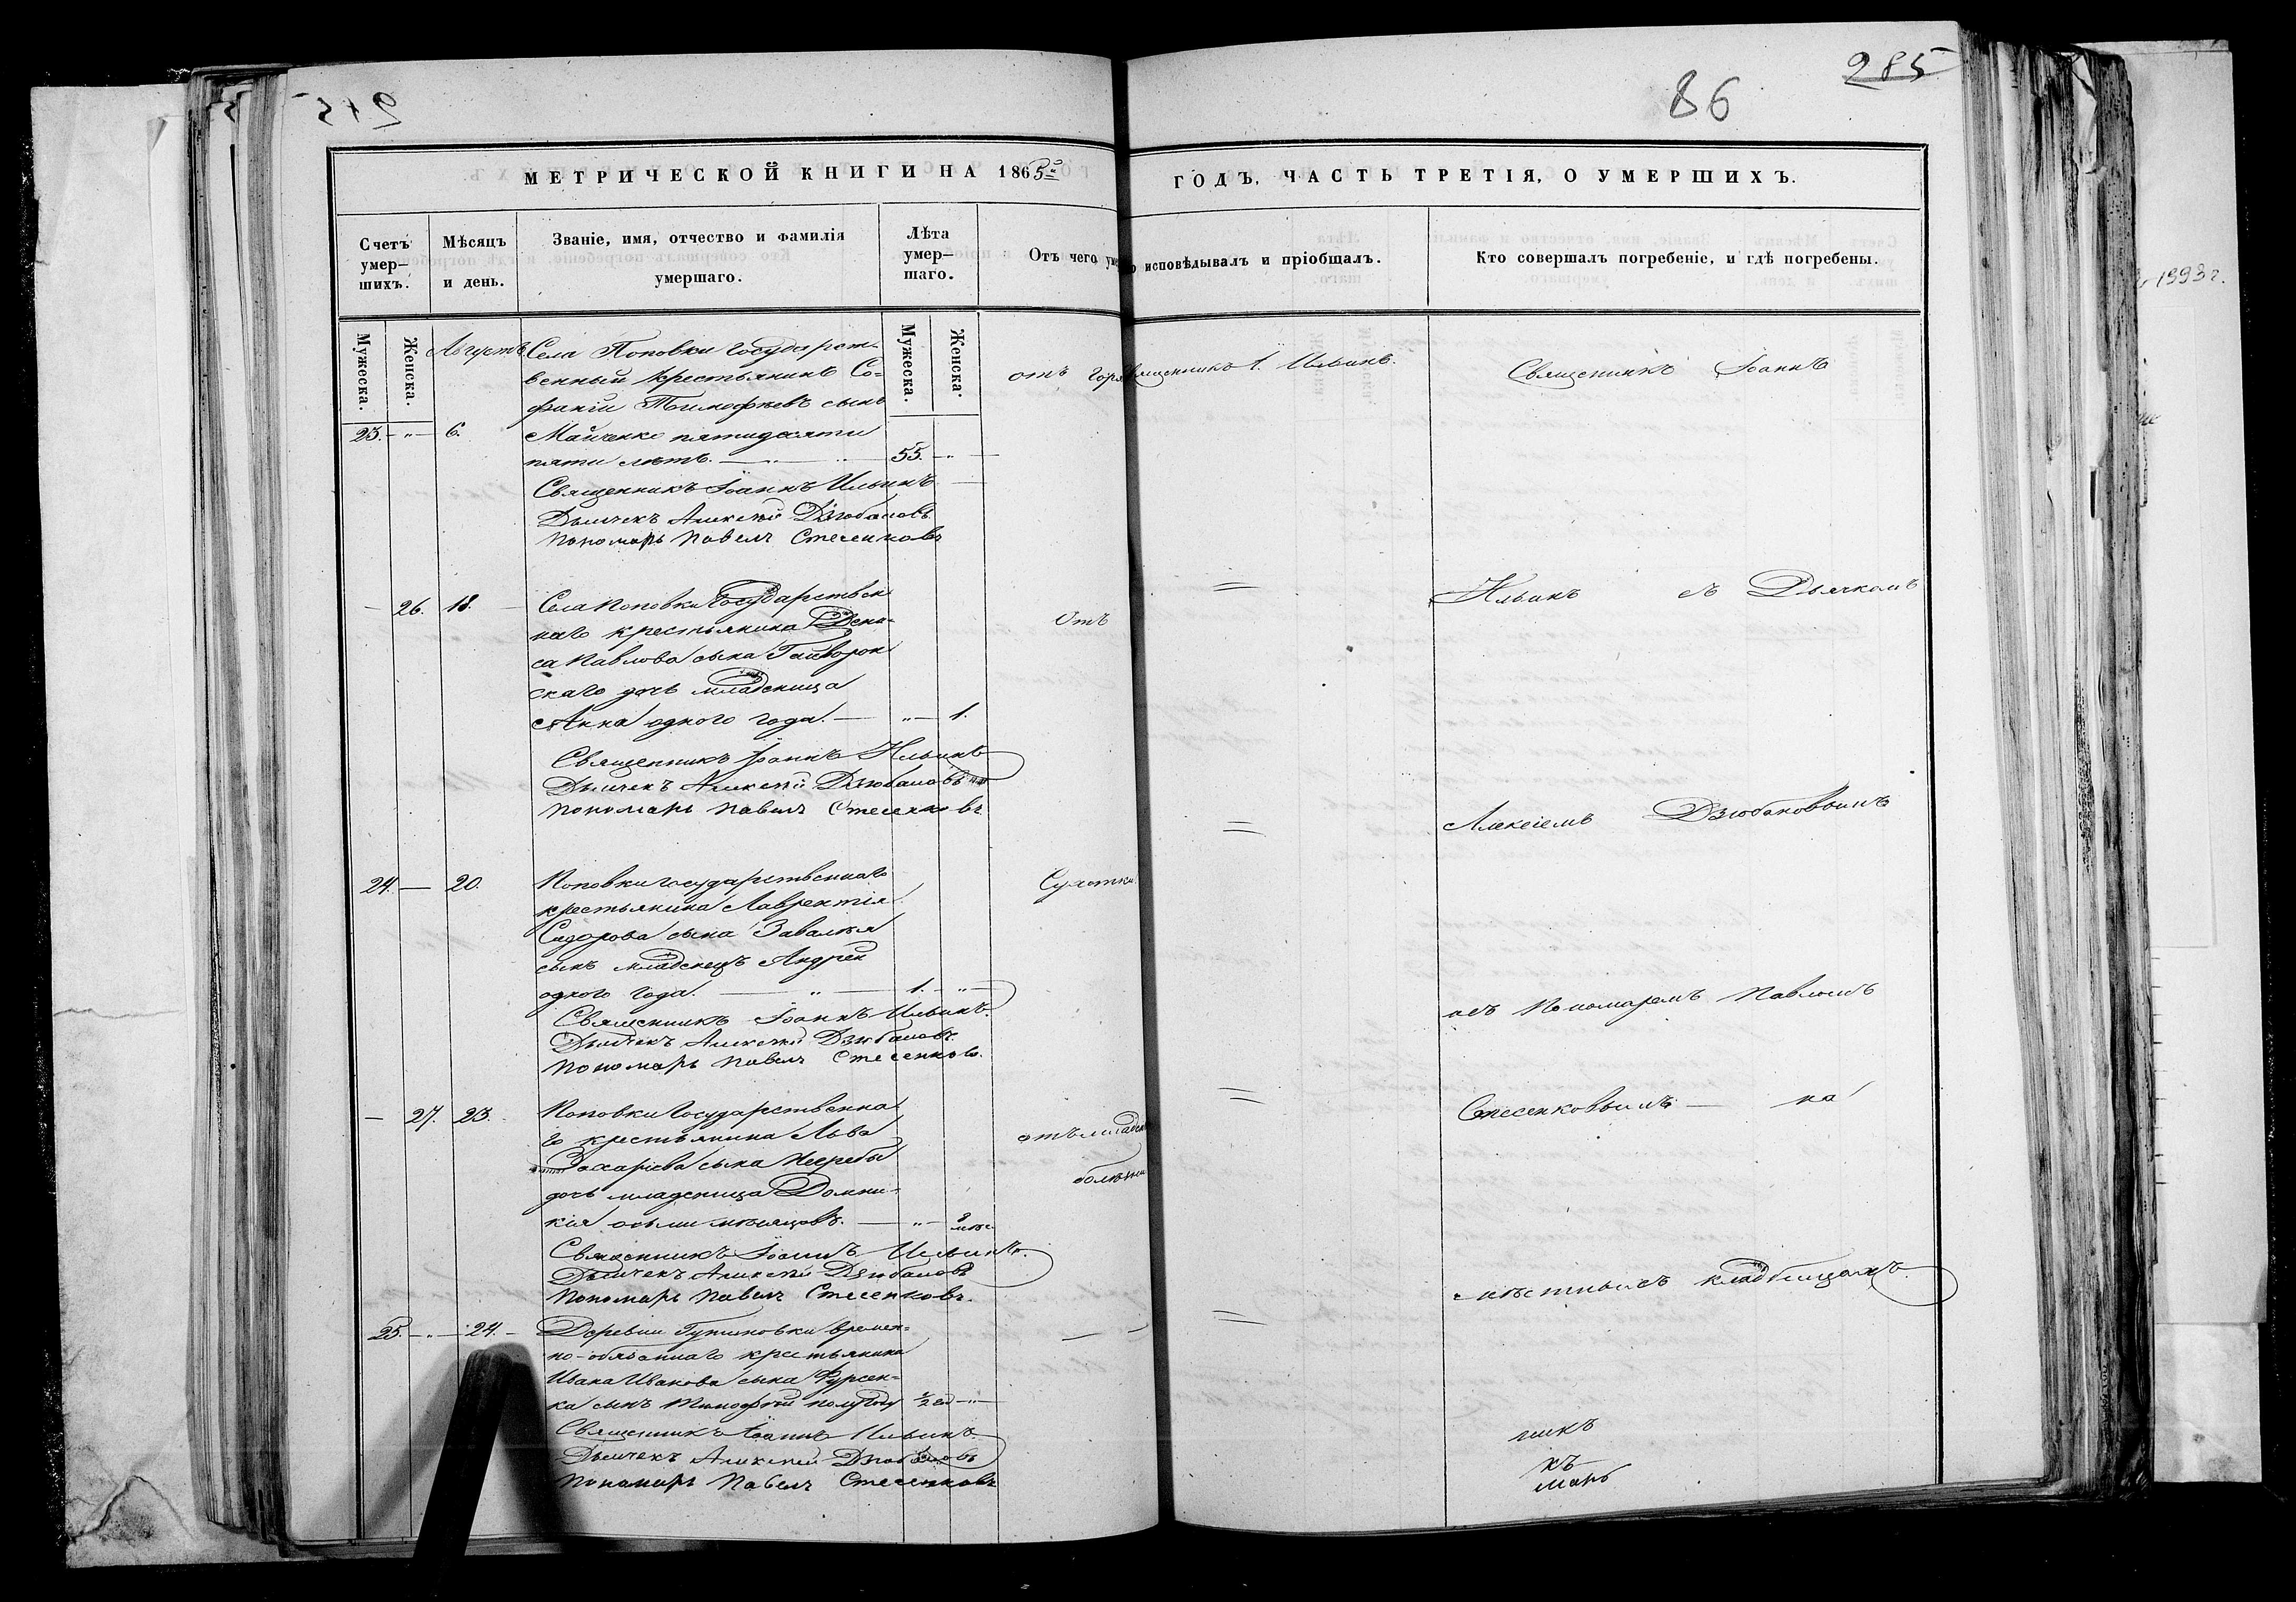 285
86
МЕТРИЧЕСКОЙ КНИГИ НА 1865й ГОДЪ, ЧАСТЬ ТРЕТІЯ, О УМЕРШИХЪ.
Счетъ умер-шихъ.
Мѣсяцъ и день.
Званіе, имя, отчество и фамилія умершаго.
Лѣта умер-шаго.
Отъ чего
исповѣдывалъ и пріобщалъ.
Кто совершалъ погребеніе, и гдѣ погребены.
Мужеска.
Женска.
Мужеска.
Женска.
Августъ
Села Поповки государст-
венный крестьянинъ Со-
фоній Тимофѣевъ сынъ
23. - " - 6. Майченко пятидесяти
пяти лѣтъ. - " - 55. - "
отъ горя
Священникъ І. Ильинъ.
Священникъ Іоаннъ
Священникъ Іоаннъ Ильинъ
Дьячекъ Алексѣй Дзюбановъ
Пономарь Павелъ Стесенковъ
- 26. 18. Села Поповки Государствен
наго крестьянина Дени-
са Павлова сына Гайворон
скаго дочь младеница
Анна одного года. - " - 1.
Отъ
=
Ильинъ съ Дьячкомъ
Священникъ Іоаннъ Ильинъ
Дьячекъ Алексѣй Дзюбановъ
Пономарь Павелъ Стесенковъ
=
Алексіемъ Дзюбановымъ
24. - 20. Поповки государственнаго
крестьянина Лаврентія
Сидорова сына Завалѣя
сынъ младенецъ Андрей
одного года. - " - 1. - "
Сухотки
Священникъ Іоаннъ Ильинъ.
Дьячекъ Алексѣй Дзюбановъ
Пономарь Павелъ Стесенковъ.
Пономаремъ Павломъ
- 27. 23. Поповки Государственна
го крестьянина Льва
Захаріева сына
дочь младеница Домни-
кія осьми мѣсяцовъ. - " - 8 мѣс
отъ младен
болѣзни
=
Стесенковымъ - на
Священникъ Іоаннъ Ильинъ.
Дьячекъ Алексѣй Дзюбановъ
Пономарь Павелъ Стесенковъ.
мѣстныхъ кладбищахъ.
25. - " - 24. - Деревни временн-
но-обязаннаго крестьянина
Ивана Иванова сына Фурсен-
ка сынъ Тимофѣй полугода 1/2 год - " -
=
Священникъ Іоаннъ Ильинъ
Дьячекъ Алексѣй Дзюбановъ
Пономарь Павелъ Стесенковъ
никъ
къ
марь
1993г.